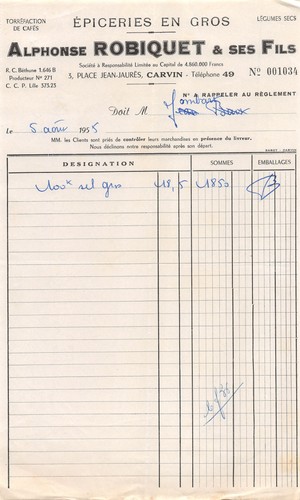 TORRÉFACTION
DE CAFÉS
ÉPICERIES EN GROS
LÉGUMES SECS
ALPHONSE ROBIQUET & SES FILS
R. C. Béthune 1.646 B
Producteur Nº 271
C. C. P. Lille 373.23
Société à Responsabilité Limitée au Capital de 4.860.000 Francs
3, PLACE JEAN-JAURÈS, CARVIN - Téléphone 49
Nº 001034
Nº A RAPPELER AU RÈGLEMENT
Doit M
Le 5 août 1955
MM. les Clients sont priés de contrôler leurs marchandises en présence du livreur.
Nous déclinons entière responsabilité après son départ.
DESIGNATION
SOMMES
EMBALLAGES
100 k sel gros 18,5 1850